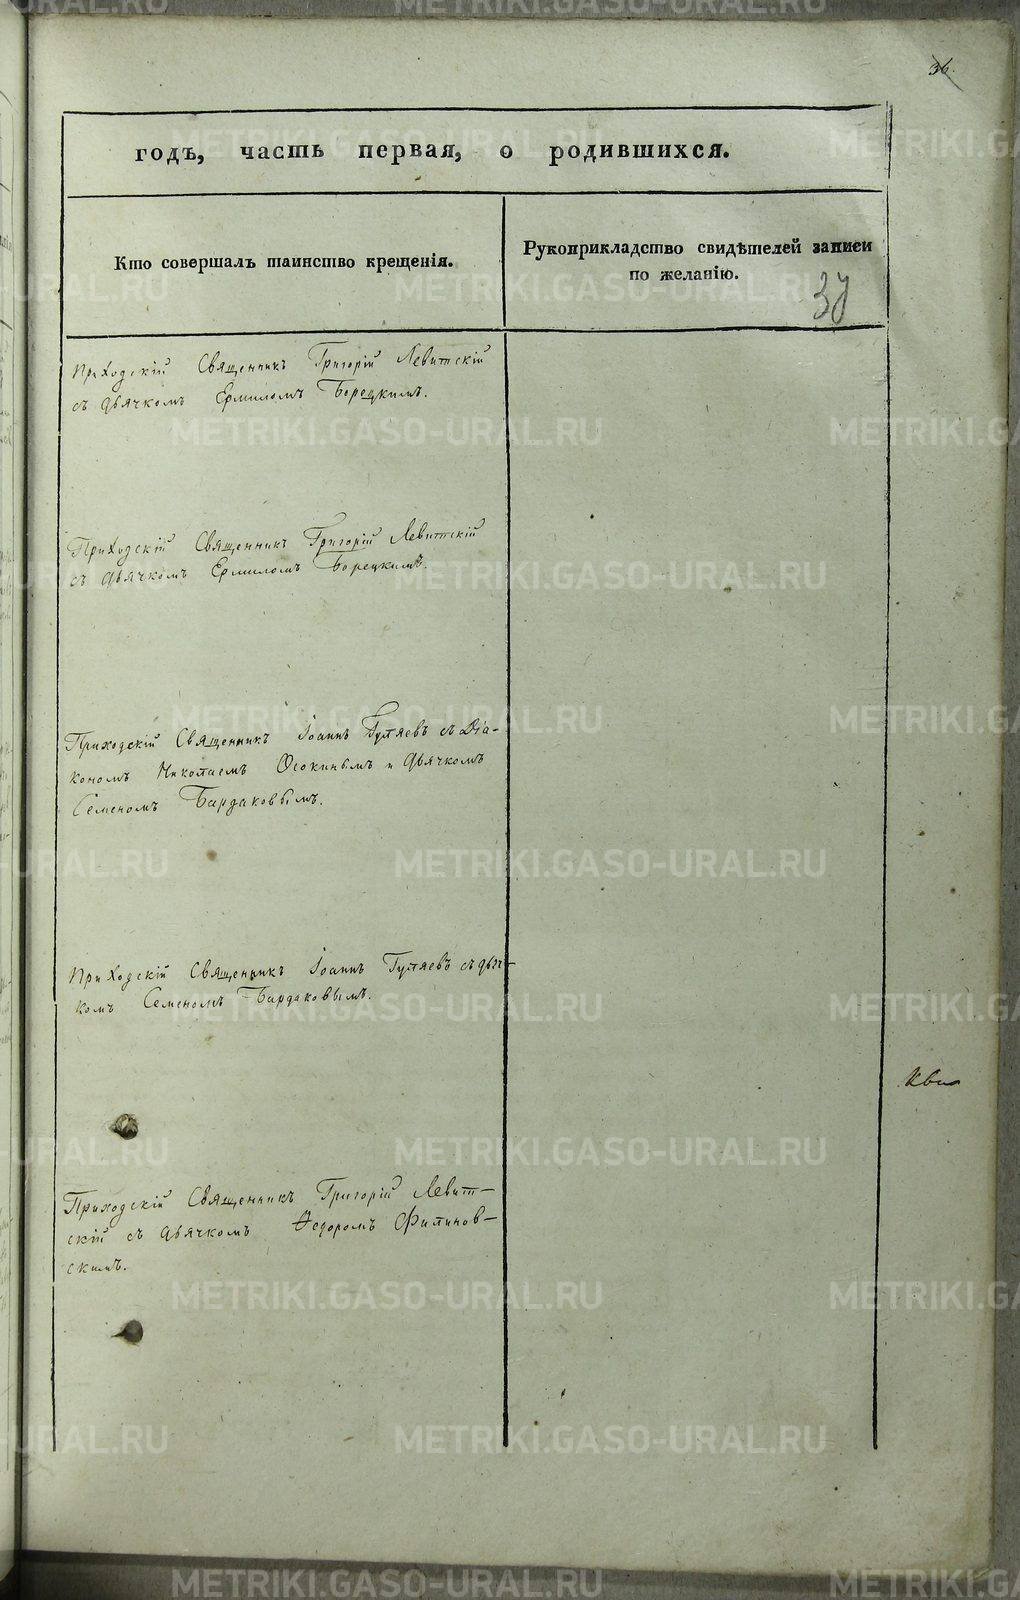 36.
годъ, часть первая, о родившихся.
Кто совершалъ таинство крещенія.
Рукоприкладство свидѣтелей записи
по желанію.
37
Приходскій Священникъ Григорій Левитскій
съ дьячкомъ Ермиломъ Борецкимъ.
Приходскій Священникъ Григорій Левитскій
съ дьячкомъ Ермиломъ Борецкимъ.
Приходскій Священникъ Іоаннъ Гуляевъ съ Діа-
кономъ Николаемъ Осокинымъ и дьячкомъ
Семеномъ Бардаковымъ.
Приходскій Священникъ Іоаннъ Гуляевъ съ дьяч-
комъ Семеномъ Бардаковымъ.
Приходскій Священникъ Григорій Левит-
скій съ дьячкомъ Ѳедоромъ Филинов-
скимъ.
METRIKI.GASO-URAL.RU